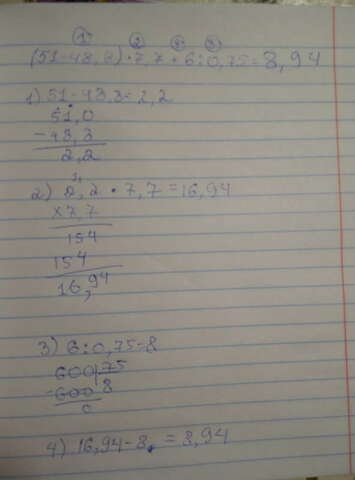 ① ② ④ ③
(51-48,8)·7,7+6:0,75=8,94
1) 51-48,8=2,2
51,0
-48,8
2,2
2) 2,2·7,7=16,94
×7,7
154
154
16,94
3) 6:0,75=8
600|75
-600 8
0
4) 16,94-8,=8,94